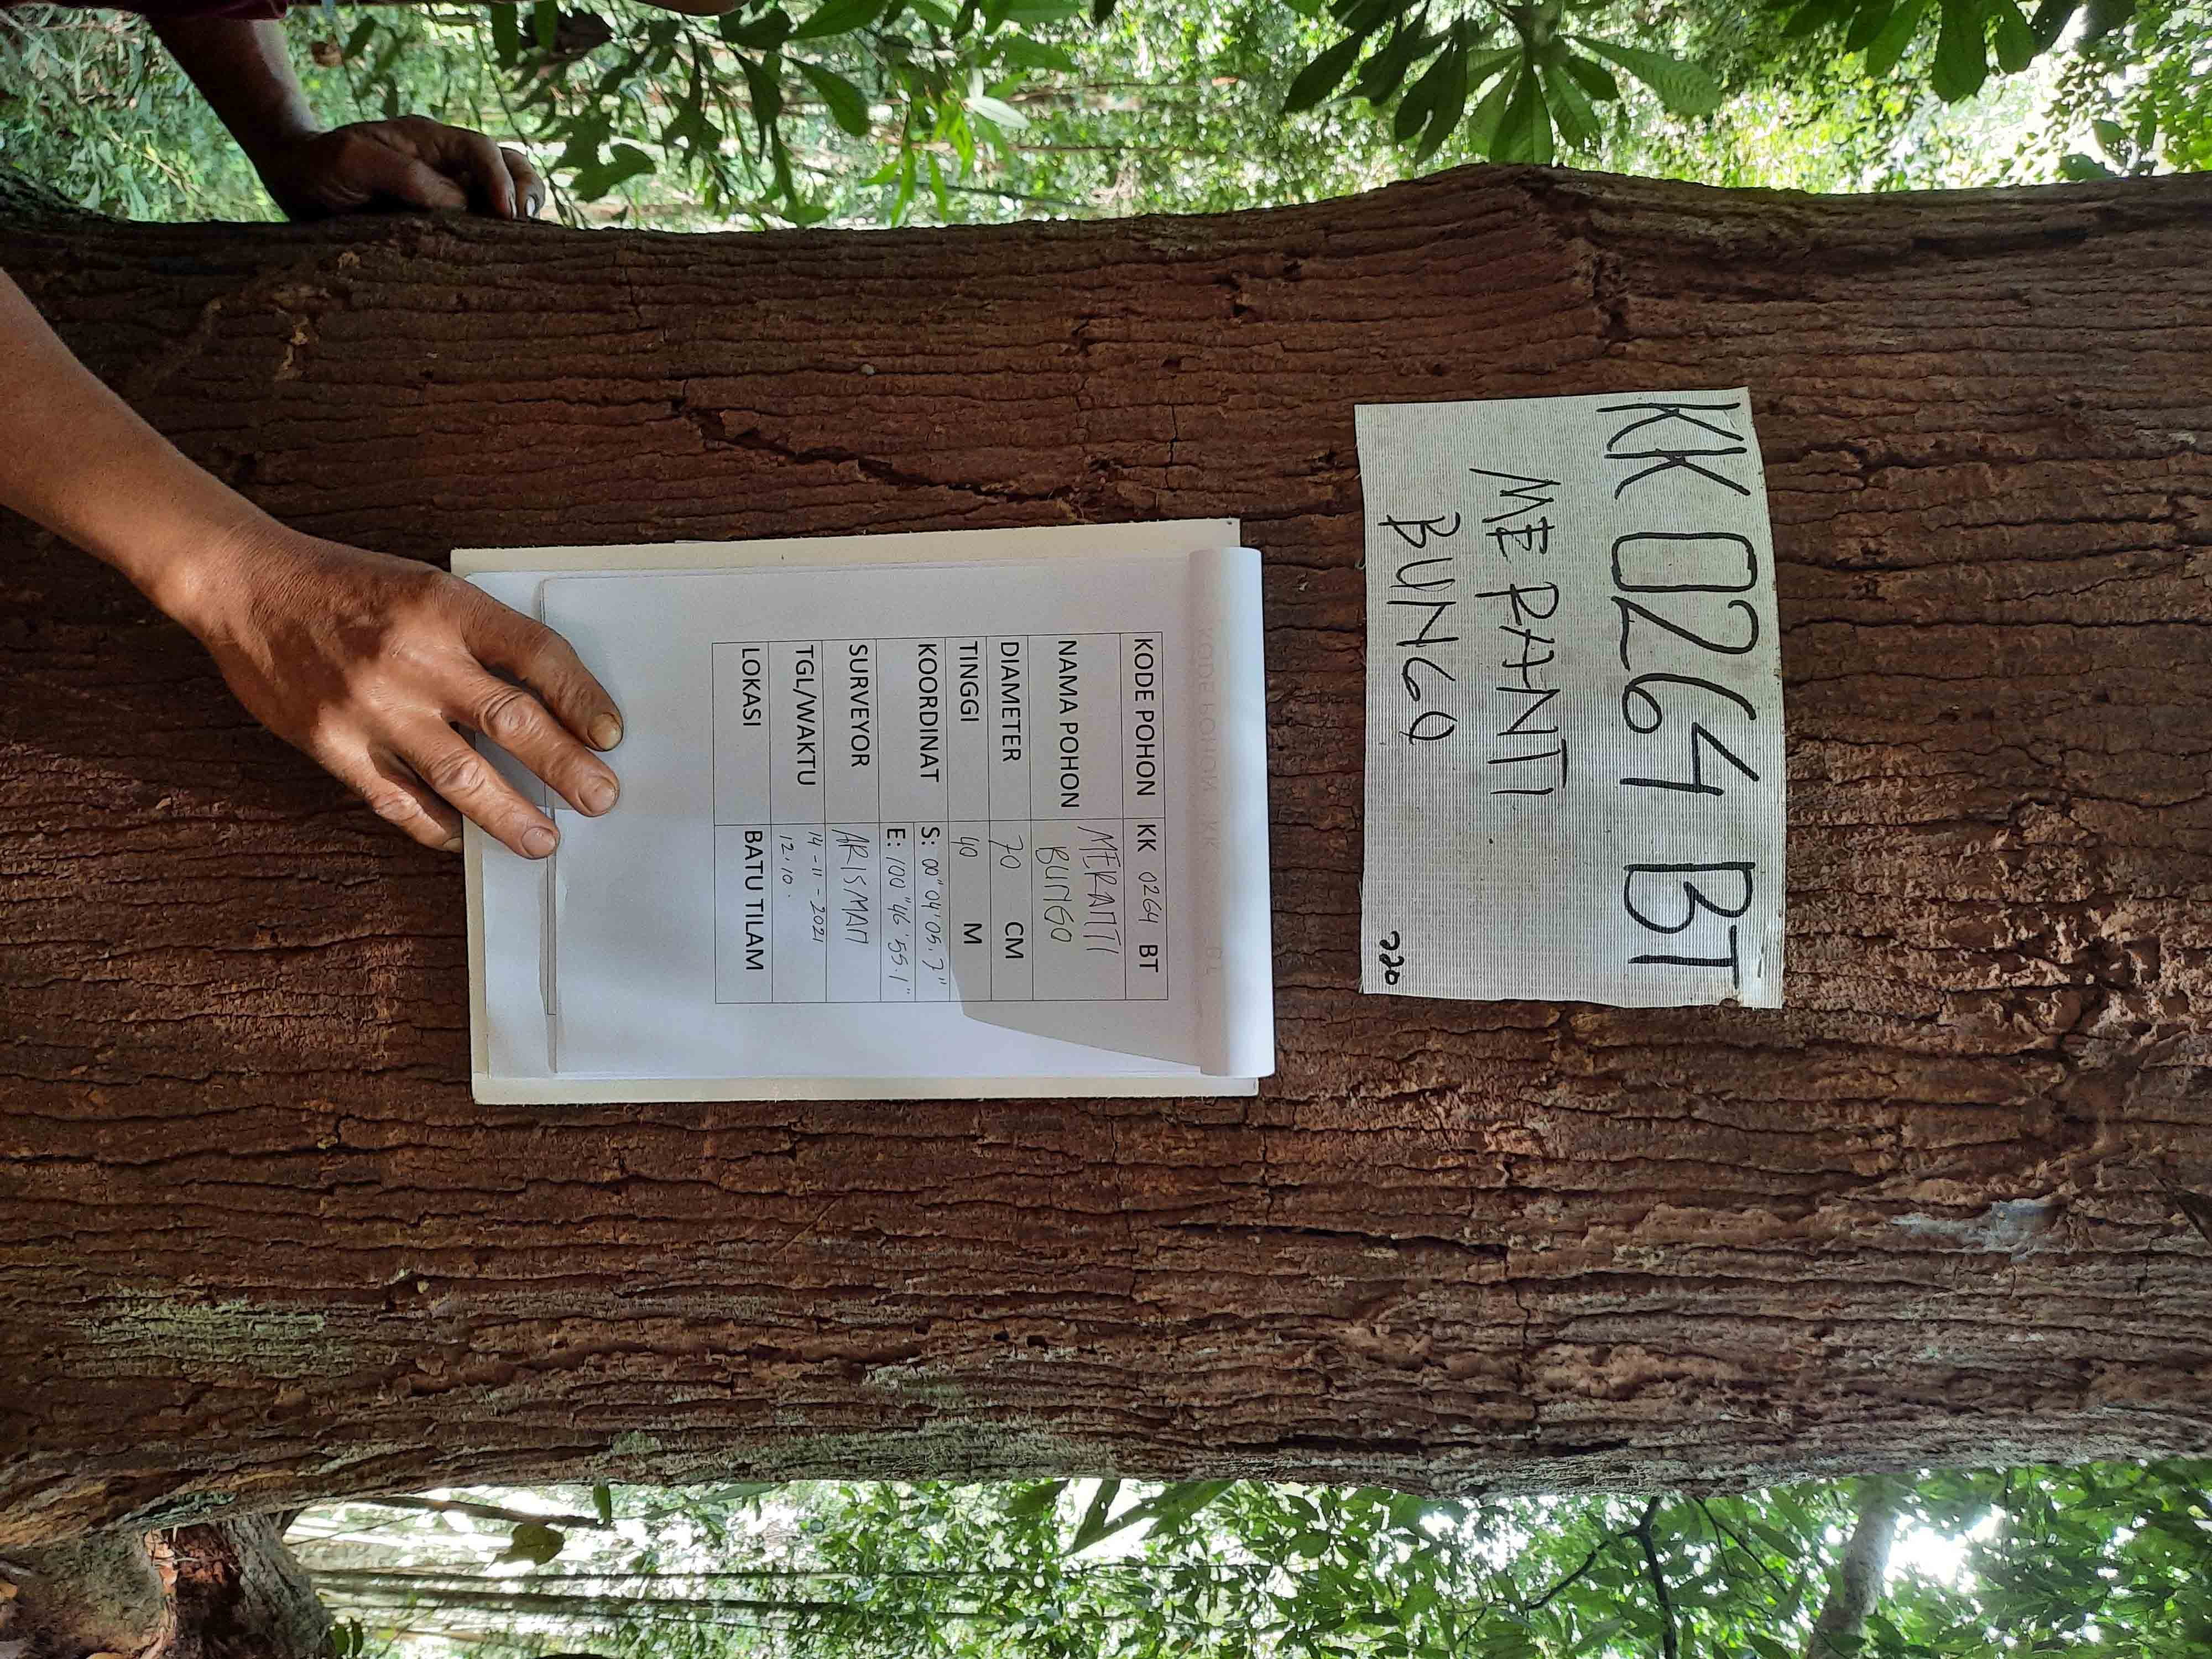 KK 0264 BT
MERANTI
BUNGO
220
KODE POHON KK 0264 BT
NAMA POHON MERANTI
BUNGO
DIAMETER 70 CM
TINGGI 40 M
KOORDINAT S: 00°04'05.7"
E: 100°46'55.1"
SURVEYOR ARISMAN
TGL/WAKTU 14-11-2021
12.10.
LOKASI BATU TILAM